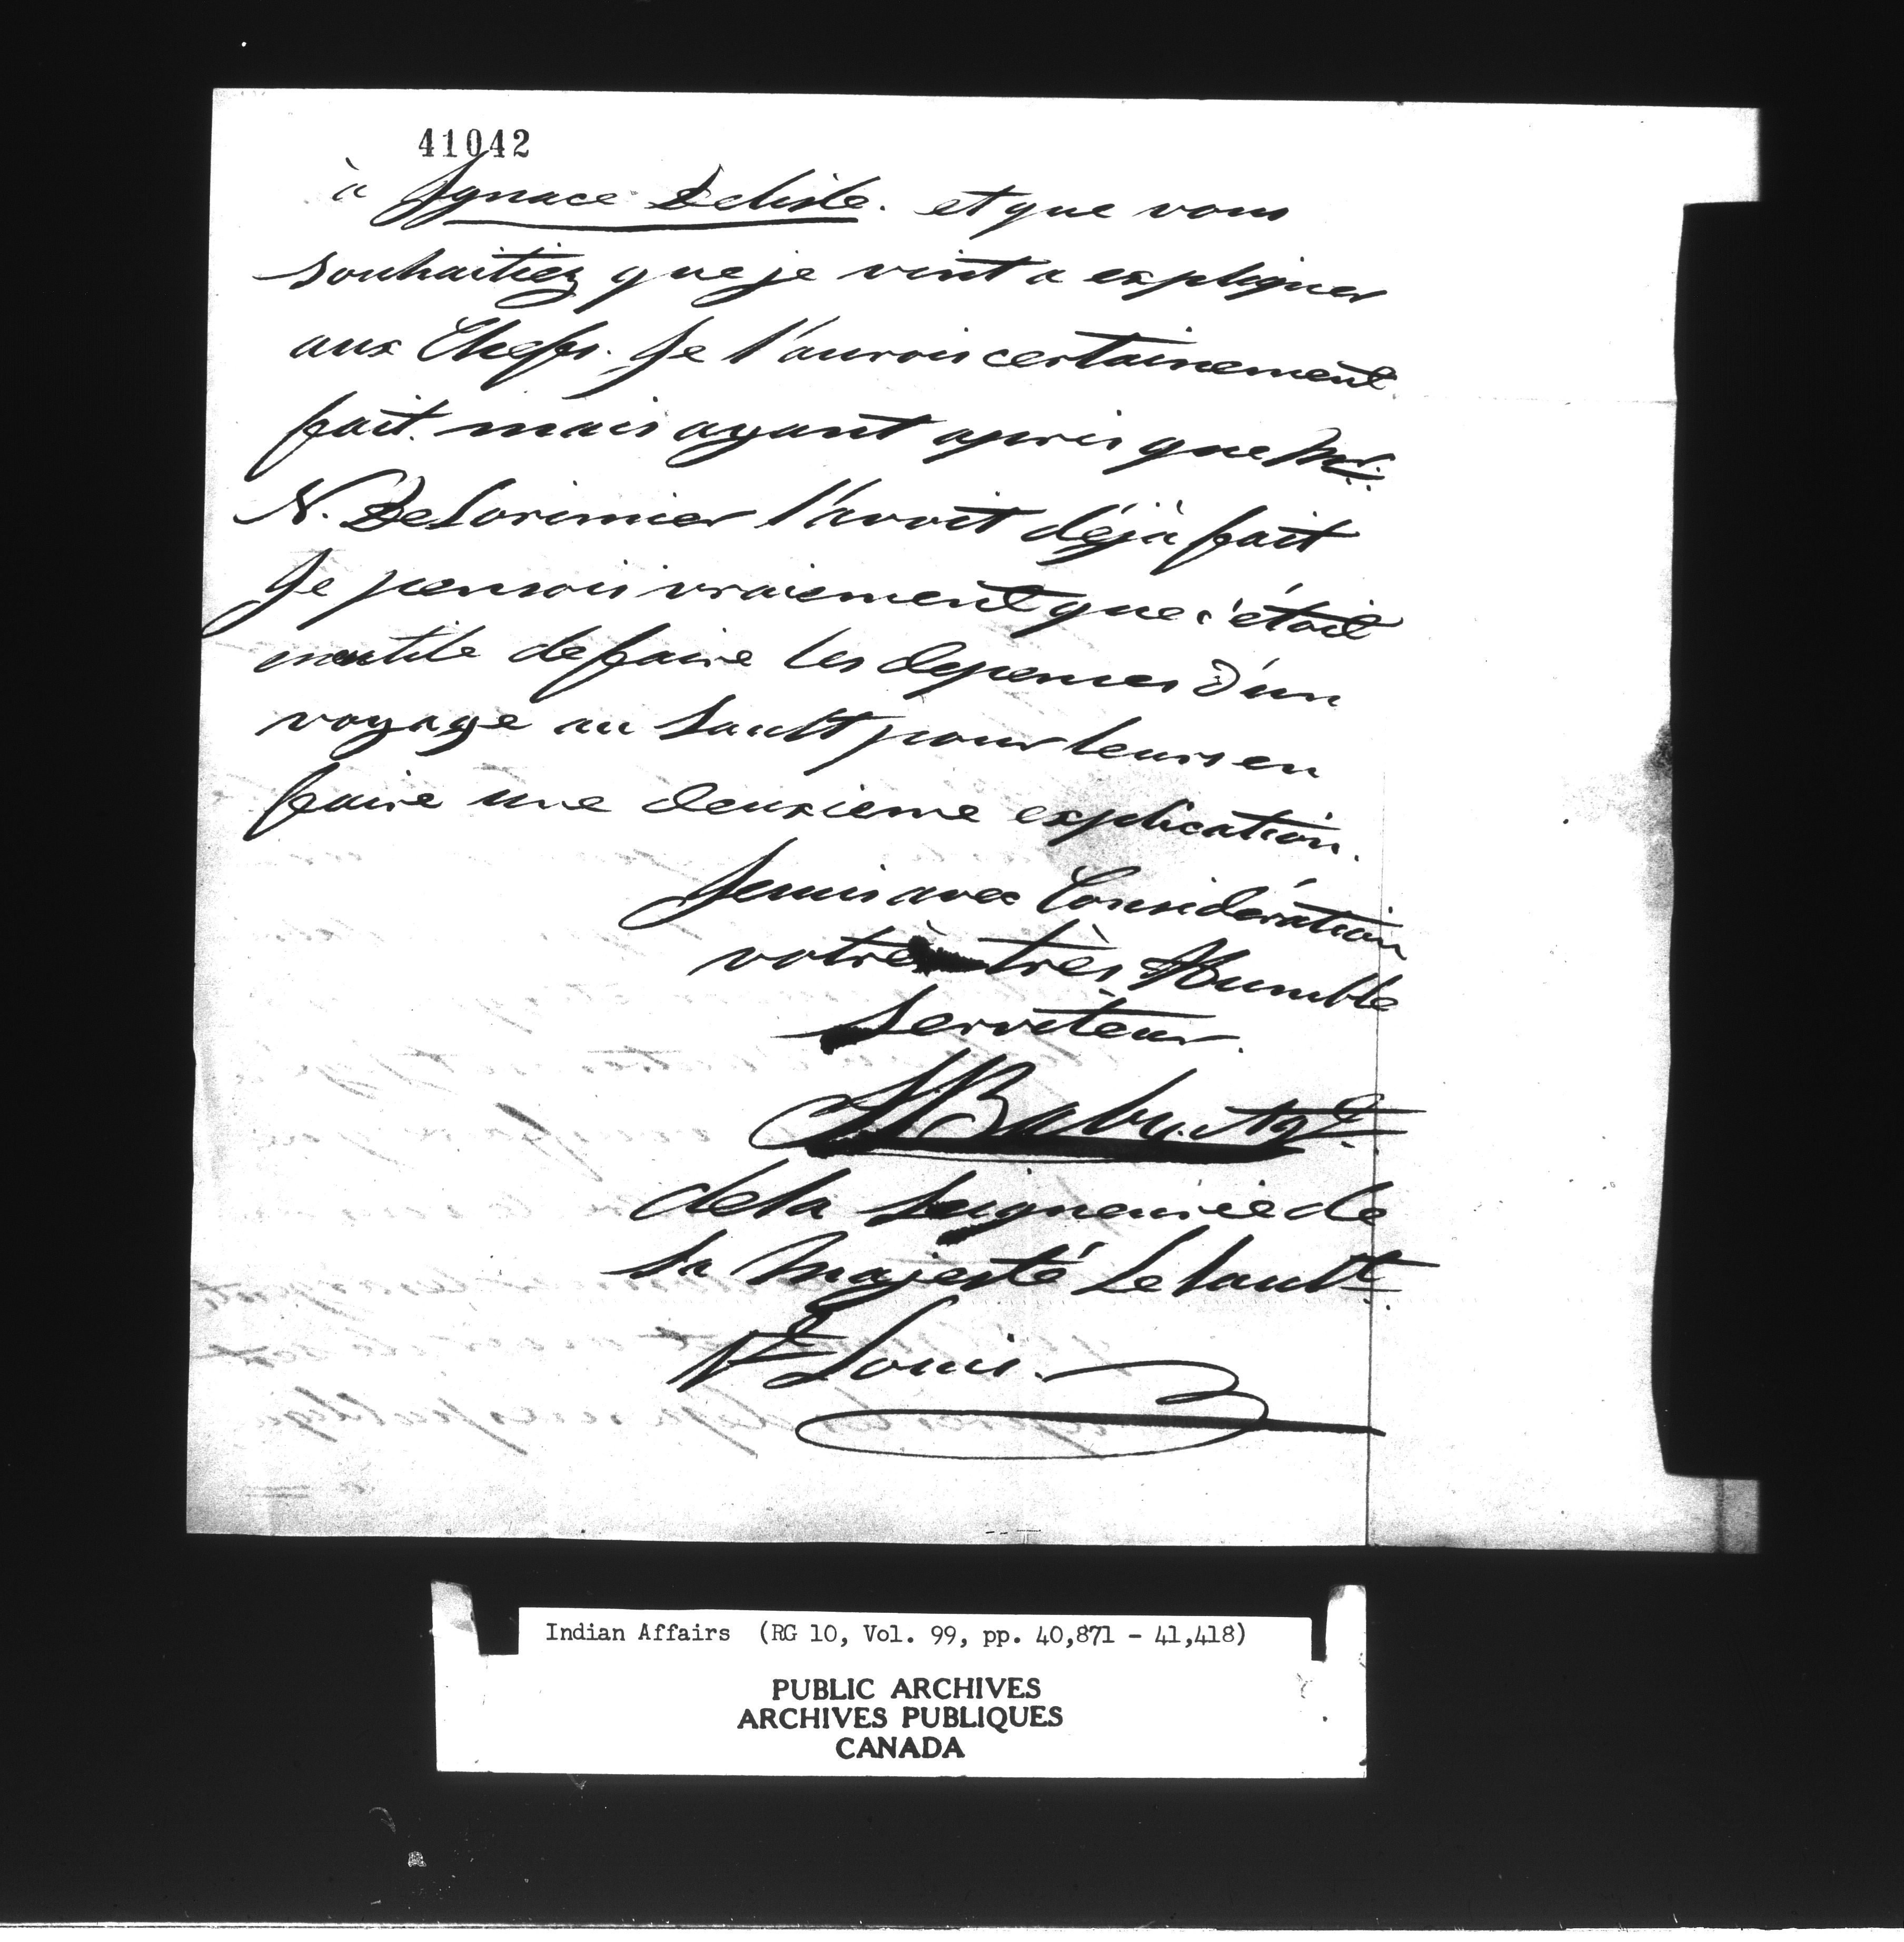 41042
à Ignace Delisle. et que vous
souhaitiez que je vint a expliquer
aux Chefs. Je l'aurois certainement
fait. mais ayant apris que Mr.
N. DeLorimier l'avoit déjà fait
Je pensois vraiement que c'étoit
inutile de faire les depenses d'un
voyage au Sault pour leurs en
faire une deuxieme explication.
Je suis avec Considération
votre très Humble
Serviteur.
Baby. Agt.
de la Seigneurie de
Sa Majesté Le Sault
St Louis.
Indian Affairs (RG 10, Vol. 99, pp. 40,871 - 41,418)
PUBLIC ARCHIVES
ARCHIVES PUBLIQUES
CANADA